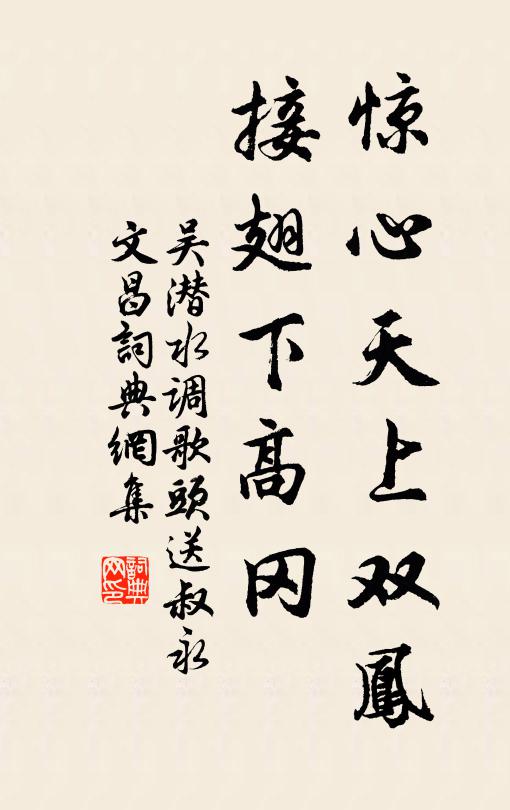 惊心天上双鳳
接翅下高冈
吴潜水调歌頭送叔永
文昌詞典網集
詞典网印